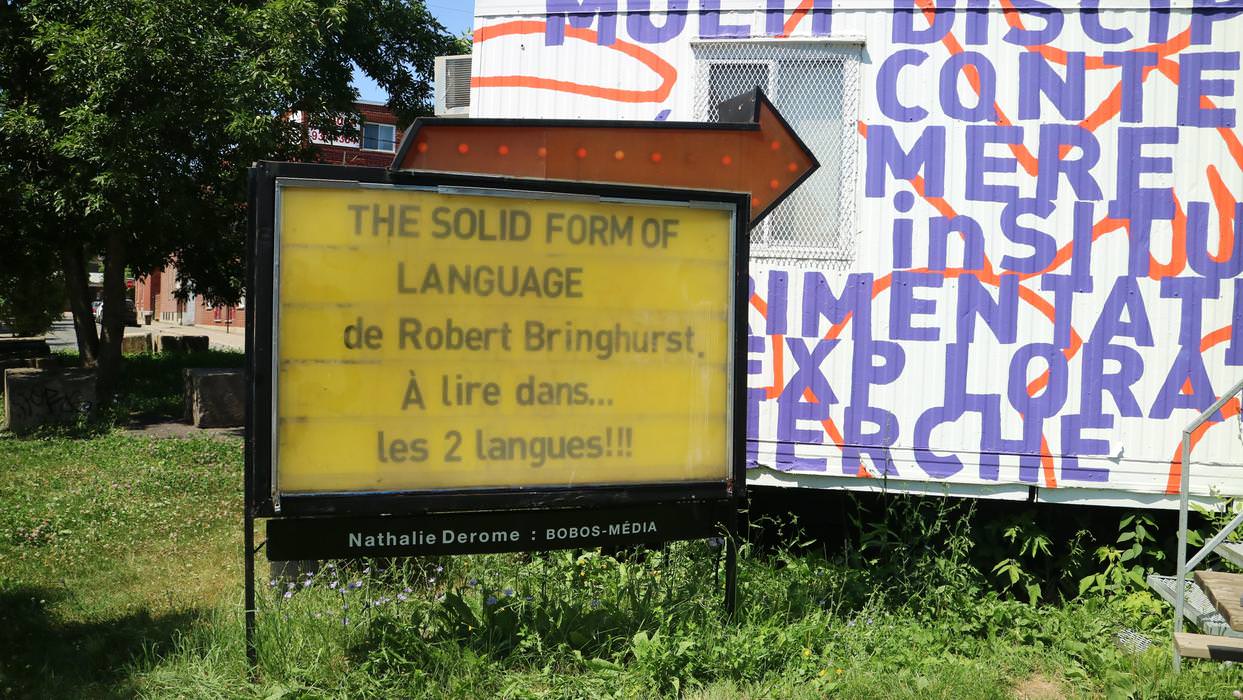 THE SOLID FORM OF
LANGUAGE
de Robert Bringhurst.
À lire dans...
les 2 langues!!!
Nathalie Derome : BOBOS-MÉDIA
MULTI DISCIP
CONTE
MERE
inSTITU
RIMENTATI
EXPLORA
ERCHE